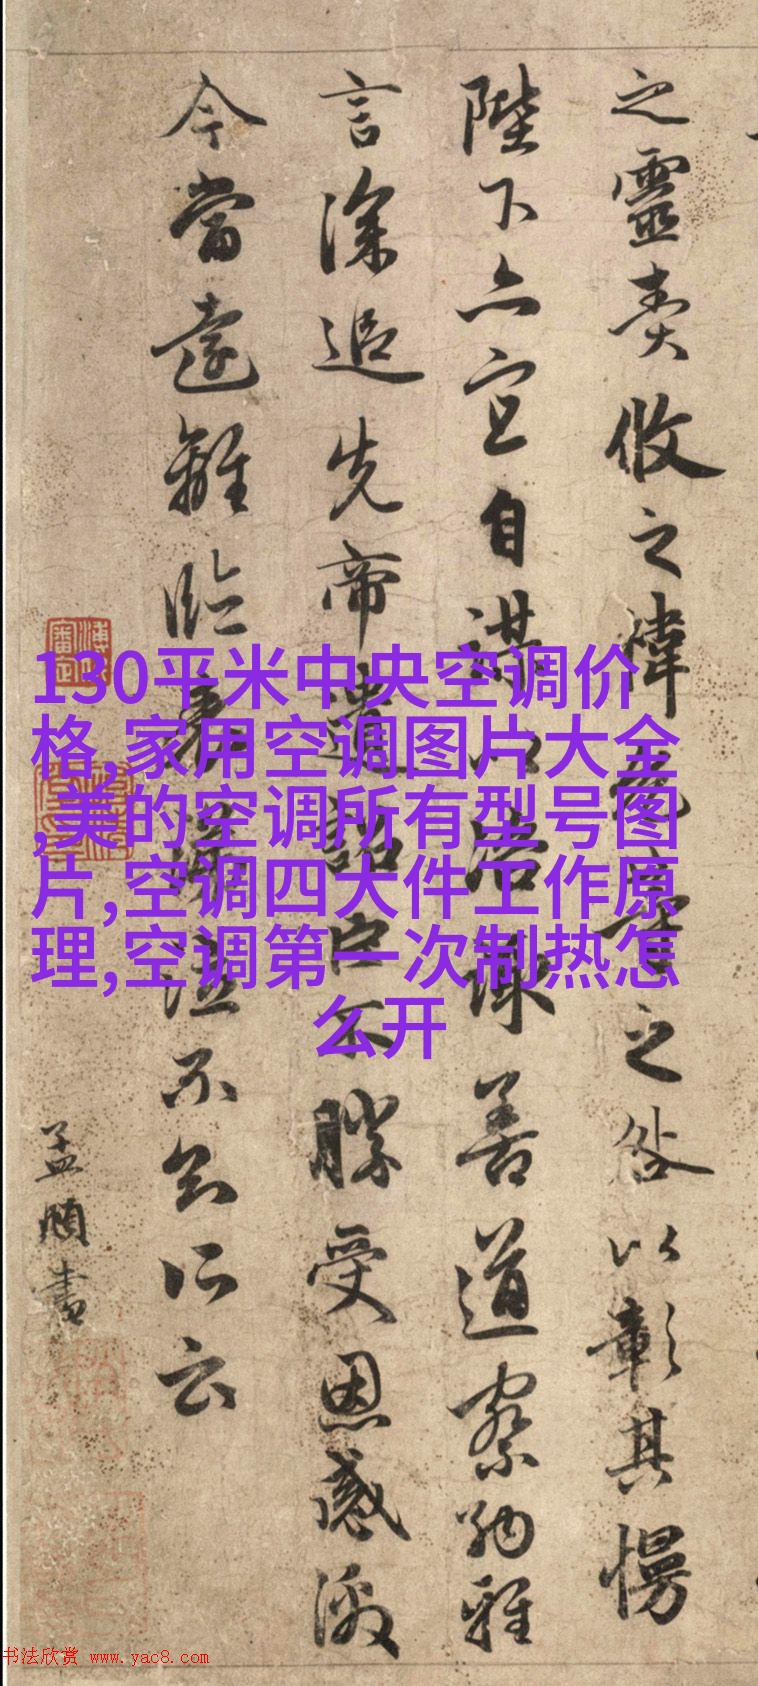 之靈責攸之禕允等之咎以彰其慢
陛下亦宜自謀以咨諏善道察納雅
言深追先帝遺詔臣不勝受恩感激
今當遠離臨表涕泣不知所云
孟頫書
130平米中央空调价
格,家用空调图片大全
,美的空调所有型号图
片,空调四大件工作原
理,空调第一次制热怎
么开
书法欣赏 www.yac8.com